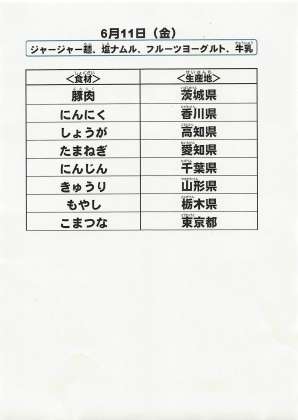 6月11日（金）
ジャージャー麺、塩ナムル、フルーツヨーグルト、牛乳
＜食材＞ ＜生産地＞
豚肉 茨城県
にんにく 香川県
しょうが 高知県
たまねぎ 愛知県
にんじん 千葉県
きゅうり 山形県
もやし 栃木県
こまつな 東京都